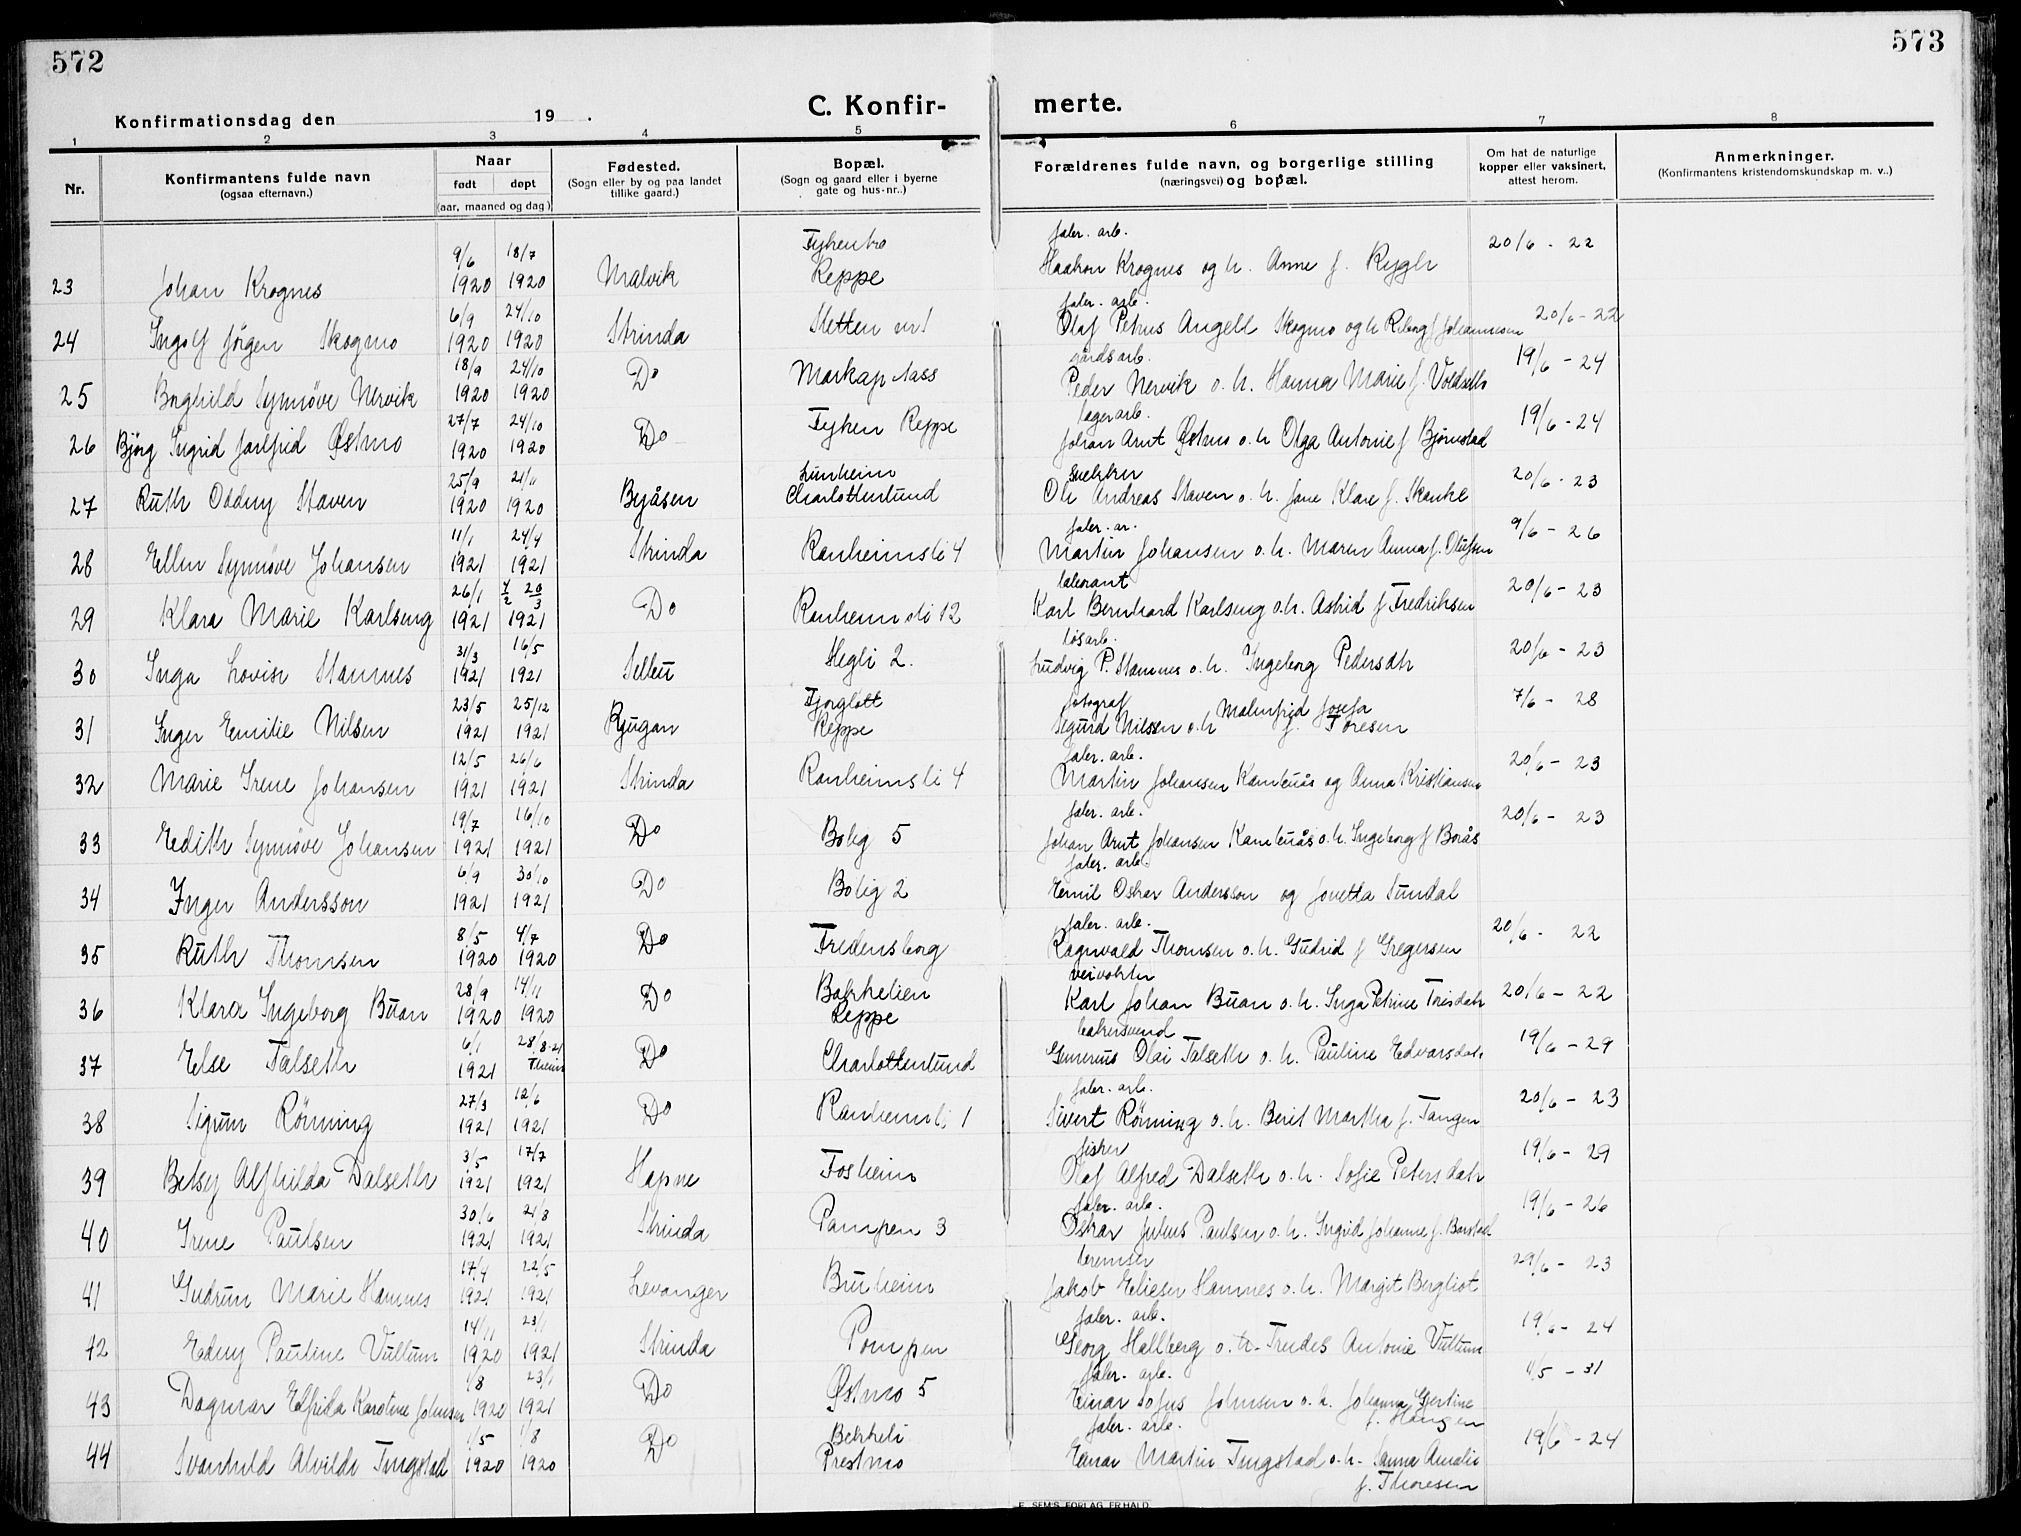 572
573
Konfirmationsdag den 19 .
C. Konfir-
merte.
1 2 3 4 5 6 7 8
Nr.
Konfirmantens fulde navn
(ogsaa efternavn.)
Naar
født døpt
(aar, maaned og dag)
Fødested.
(Sogn eller by og paa landet
tillike gaard.)
Bopæl.
(Sogn og gaard eller i byerne
gate og hus-nr..)
Forældrenes fulde navn, og borgerlige stilling
(næringsvei) og bopæl.
Om hat de naturlige
kopper eller vaksinert,
attest herom.
Anmerkninger.
(Konfirmantens kristendomskundskap m. v..)
9/6 18/7 faler. arb. 20/6 - 22
23 Johan Krognes 1920 1920 Malvik Reppe Haakon Krognes og h. Anne f. Rygh
6/9 24/10 faler. arb. 20/6 - 22
24 Ingolf Jörgen Skogmo 1920 1920 Strinda Sletten nr 1 Olaf Petrus Angell Skogmo og h f Johannesen
18/9 24/10 gårdsarb. 19/6 - 24
25 Borghild Synnöve Nervik 1920 1920 Do Peder Nervik o. h. Hanna Marie f. Voldseth
27/7 24/10 lagerarb. 19/6 - 24
26 Björg Ingrid Jarlfrid Østmo 1920 1920 Do Reppe Johan Arnt Østmo o. h Olga Antonie f Bjørnstad
25/9 21/11 snekker 20/6 - 23
27 Ruth Oddny Staven 1920 1920 Byåsen Charlottenlund Ole Andreas Staven o. h. Jane Klare f. Skanke
11/1 24/4 faler. ar. 9/6 - 26
28 Ellen Synnöve Johansen 1921 1921 Strinda Ranheimsli 4 Martin Johansen o. h. Maren Anna f. Olufsen
26/1 20/3 laborant 20/6 - 23
29 Klara Marie Karlseng 1921 1921 Do Ranheimsli 12 Karl Bernhard Karlseng o.h. Astrid f Fredriksen
31/3 16/5 løsarb. 20/6 - 23
30 Inga Lovise Stamnes 1921 1921 Hegli 2. Ludvig P. Stamnes o. h. Ingeborg Pedersdtr
23/5 25/12 Fjorgløtt fotograf 7/6 - 28
31 Inger Emilie Nilsen 1921 1921 Rjugan Reppe Sigurd Nilssen o. h Malmfrid Josefa f. Toresen
12/5 26/6 faler. arb. 20/6 - 23
32 Marie Irene Johansen 1921 1921 Strinda Ranheimsli 4 Martin Johansen Kamtuås og Anna Kristiansen
19/7 16/10 faler. arb. 20/6 - 23
33 Edith Synnöve Johansen 1921 1921 Do Bolig 5 Johan Arnt Johansen Kamtuås o. h. Ingeborg f Borås
6/9 30/10 faler. arb.
34 Inger Andersson 1921 1921 Do Bolig 2 Emil Oskar Andersson og Jovetta Sundal
8/5 4/7 faler. arb. 20/6 - 22
35 Ruth Thomsen 1920 1920 Do Fredensborg Ragnvald Thomsen o. h. Gudrid f Gregersen
28/9 14/11 veivokter 20/6 - 22
36 Klara Ingeborg Buan 1920 1920 Do Bakkelien Reppe Karl Johan Buan o. h. Inga Petrine
6/1 28/8-21 bakersvend 19/6 - 29
37 Else Falseth 1921 Do Charlottenlund Generius Olai Falseth o. h. Pauline Edvarsdatr
27/3 12/6 faler. arb. 20/6 - 23
38 Sigrun Rönning 1921 1921 Do Ranheimsli 1 Sivert Rönning o. h. Berit Martha f. Tangen
3/5 17/7 fisker 19/6 - 29
39 Betsy Alfhilda Dalseth 1921 1921 Hopne Fosheim Olaf Alfred Dalseth o. h. Sofie Petersdatr
30/6 21/8 faler. arb. 19/6 - 26
40 Irene Paulsen 1921 1921 Strinda Pampen 3 Oskar Julius Paulsen o. h. Ingrid Johanne f. Barstad
17/4 22/5 bremser 29/6 - 23
41 Gudrun Marie Hamnes 1921 1921 Levanger Buheim Jakob Elieser Hamnes o. h. Margit Bergliot
14/11 23/1 faler. arb. 19/6 - 24
42 Edny Pauline Vullum 1920 1921 Strinda Pompen Georg Hallberg o. h. Antonie Vullum
1/8 23/1 faler. arb. 4/5 - 31
43 Dagmar Elfrida Karoline Johnsen 1920 1921 Do Østmo 5 Einar Sofus Johnsen o. h. Johanna Gjertine
f. Haugen
1/5 1/8 Bekkeli faler. arb. 19/6 - 24
44 Svanhild Alvilde Tingstad 1920 1920 Do Prestmo Einar Martin Tingstad o. h. Sanna Amalie
f. Thoresen
E. SEM'S FORLAG, FR.HALD